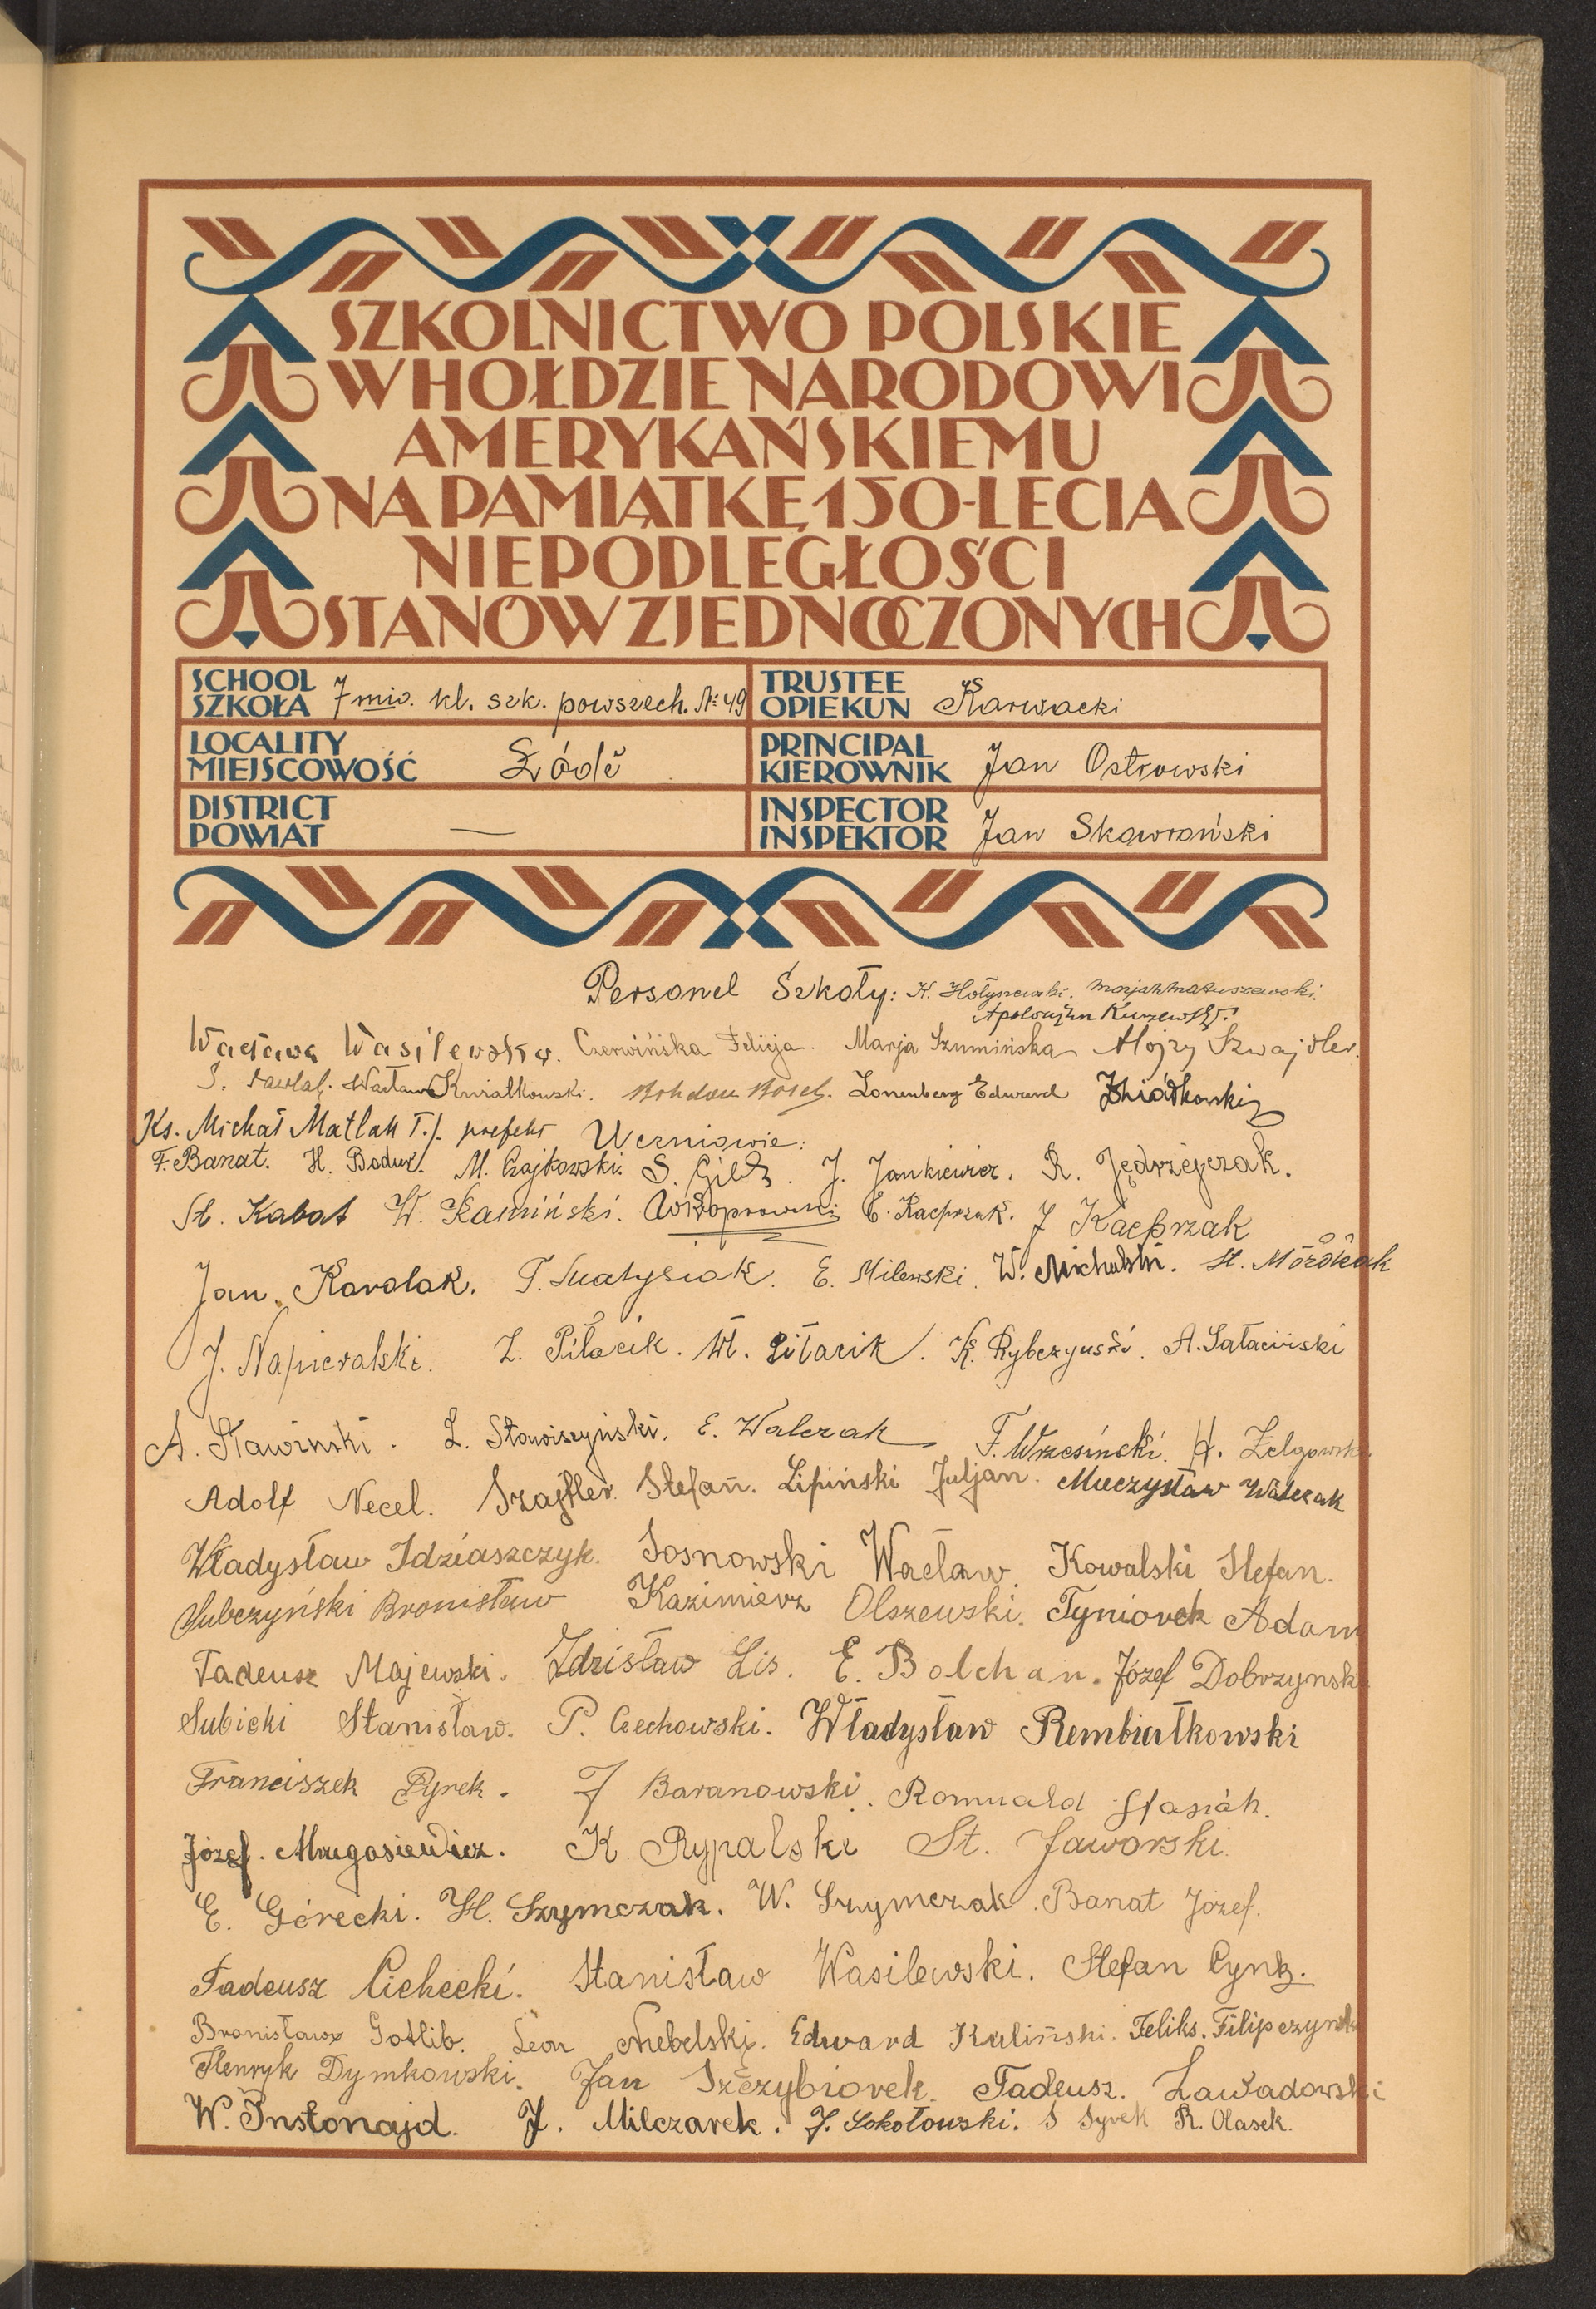 SZKOLNICTWO POLSKIE
W HOŁDZIE NARODOWI
AMERYKAŃSKIEMU
NA PAMIĄTKĘ 150-LECIA
NIEPODLEGŁOŚCI
STANÓW ZJEDNOCZONYCH
SCHOOL
SZKOŁA 7mio. kl. szk. powszech. № 49
TRUSTEE
OPIEKUN Karwacki
LOCALITY
MIEJSCOWOŚĆ Łódź
PRINCIPAL
KIEROWNIK Jan Ostrowski
DISTRICT
POWIAT —
INSPECTOR
INSPEKTOR Jan Skowroński
Personel Szkoły: K. Hołyszewski. Marjan Matuszewski.
Wacława Wasilewska. Czerwińska Felicja. Marja Szumińska Alojzy Szwajdler.
Wacław Kwiatkowski. Bohdan Lonenberg Edward
Ks. Michał Matlak T.J. prefekt Uczniowie:
F. Banat. H. Boduł. M. Czajkowski. S. J. Jankiewicz. R. Jędrzejczak.
St. Kabat W. Kamiński. E. Kacprzak. J Kacprzak
Jan Karolak. T. Matysiak. E. Milewski. W. Michalski.
J. Napieralski. Z. Piłacik. Wł. Piłacik. K. Rybczyński. A. Sałaciński
A. Sławiński. Z. Stawiszyński. E. Walczak F. Wrzesiński. H.
Adolf Necel. Szajfler Stefan. Lipiński Juljan. Mieczysław Walczak
Władysław Idziaszczyk. Sosnowski Wacław. Kowalski Stefan.
Lubczyński Bronisław Kazimierz Olszewski. Tyniorek Adam
Tadeusz Majewski. Zdzisław Lis. E. Bolchan. Józef Dobrzynski
Subicki Stanisław. P. Czechowski. Władysław Rembiałkowski
Franciszek Pyrek. J Baranowski. Romuald Stasiak.
Józef. Mrugasiewicz. K Rypalski St. Jaworski.
E. Górecki. H. Szymczak. W. Szymczak. Banat Józef.
Tadeusz Cichecki. Stanisław Wasilewski. Stefan
Bronisław Gotlib. Leon Nubelski. Edward Kuliński. Feliks. Filipczyński
Henryk Dymkowski. Jan Szczybiorek. Tadeusz. Zawadowski
W. Instonajd. J. Milczarek. J. Sokołowski. S Syrek R. Olasek.